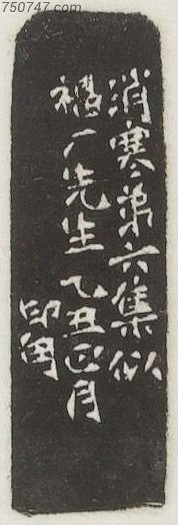 750747.com
消寒第六集似
禣厂先生乙丑四月
印匋